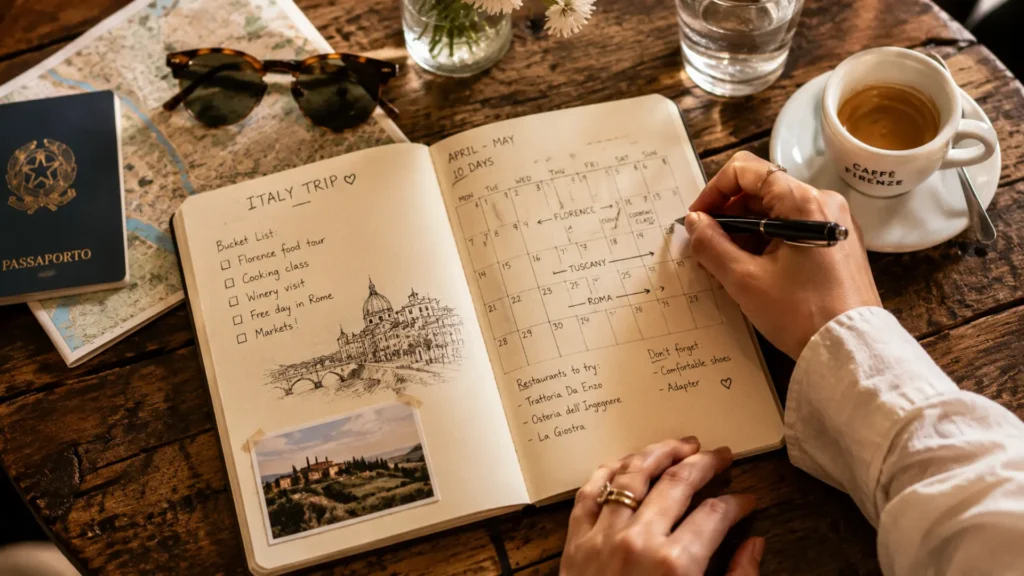 PASSAPORTO
ITALY TRIP ♡
Bucket List:
☐ Florence food tour
☐ Cooking class
☐ Winery visit
☐ Free day in Rome
☐ Markets!
APRIL - MAY
10 DAYS
MON TUE WED THU FRI SAT SUN
← FLORENCE →
COOKING
CLASS
14 15 16
← TUSCANY →
21 22 23 25
← ROMA →
28 29 30
Restaurants to try:
- Trattoria Da Enzo
- Osteria dell' Ingegnere
- La Giostra
Don't forget
- Comfortable shoes
- Adapter ♡
CAFFÈ
FIRENZE